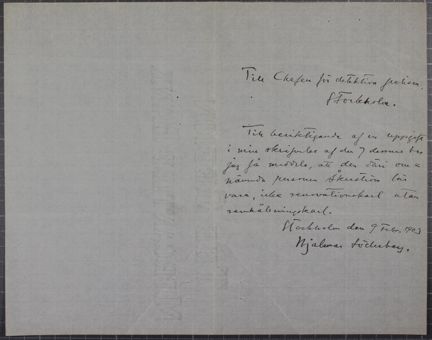 Till Chefen för detektiva polisen,
Stockholm.
Till beriktigande af en uppgift
i min skrifvelse af den 7 dennes ber
jag få meddela, att den däri om-
nämnda personen Åkerström lär
vara, icke renovationskarl utan
renhållningskarl.
Stockholm den 9 Febr. 1903
Hjalmar Söderberg.